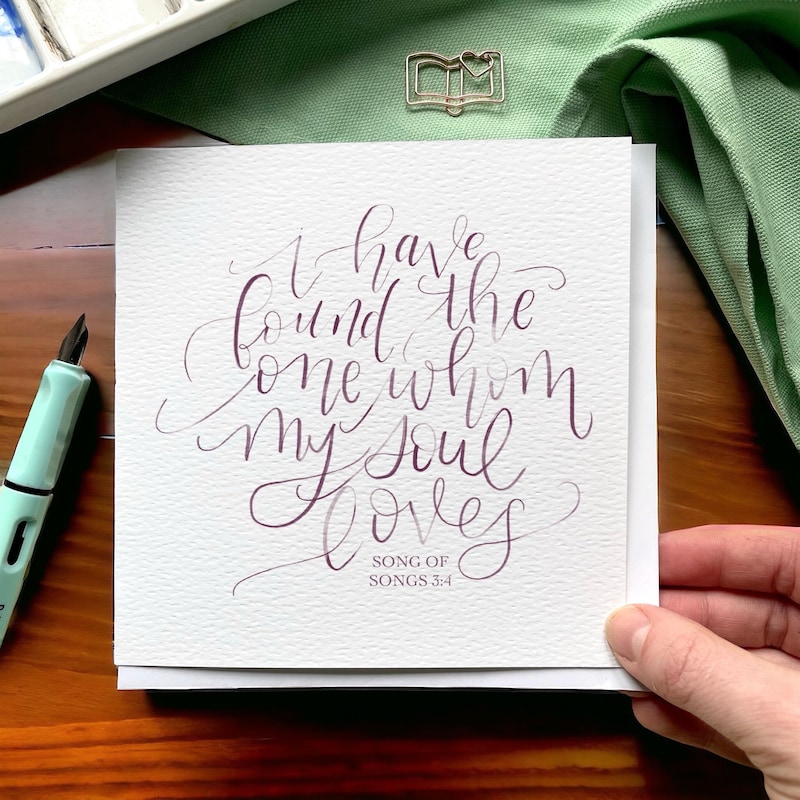 i have
found the
one whom
my soul
loves
SONG OF
SONGS 3:4